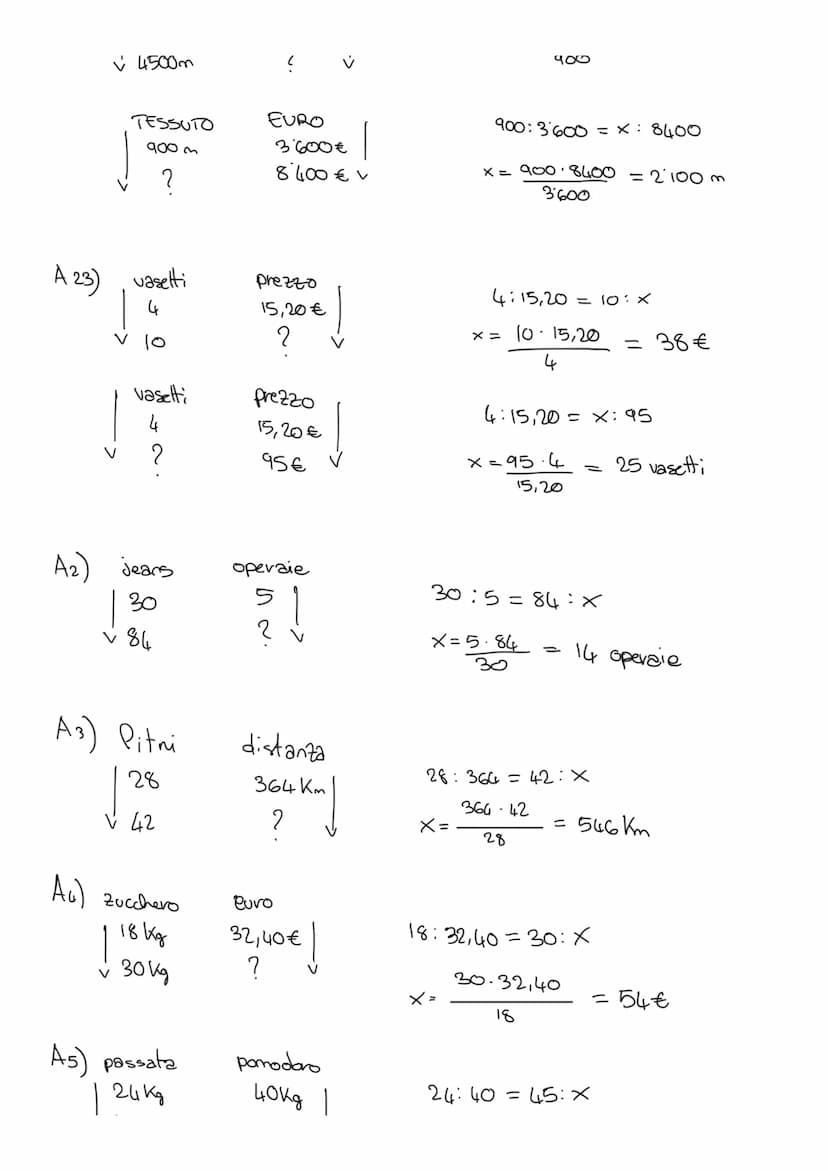 4500m ? 900
TESSUTO EURO
900 m 3'600€ 900:3'600 = x : 8400
? 8'400€ x = 900·8400 / 3'600 = 2'100 m
A 23) vasetti prezzo
4 15,20€ 4:15,20 = 10:x
10 ? x = 10·15,20 / 4 = 38€
vasetti prezzo
4 15,20€ 4:15,20 = x:95
? 95€ x = 95·4 / 15,20 = 25 vasetti
A2) jeans operaie
30 5 30:5 = 84:x
84 ? x = 5·84 / 30 = 14 operaie
A3) litri distanza
28 364Km 28:364 = 42:x
42 ? x = 364·42 / 28 = 546Km
A4) zucchero euro
18Kg 32,40€ 18:32,40 = 30:x
30Kg ? x = 30·32,40 / 18 = 54€
A5) passata pomodoro
24Kg 40Kg 24:40 = 45:x